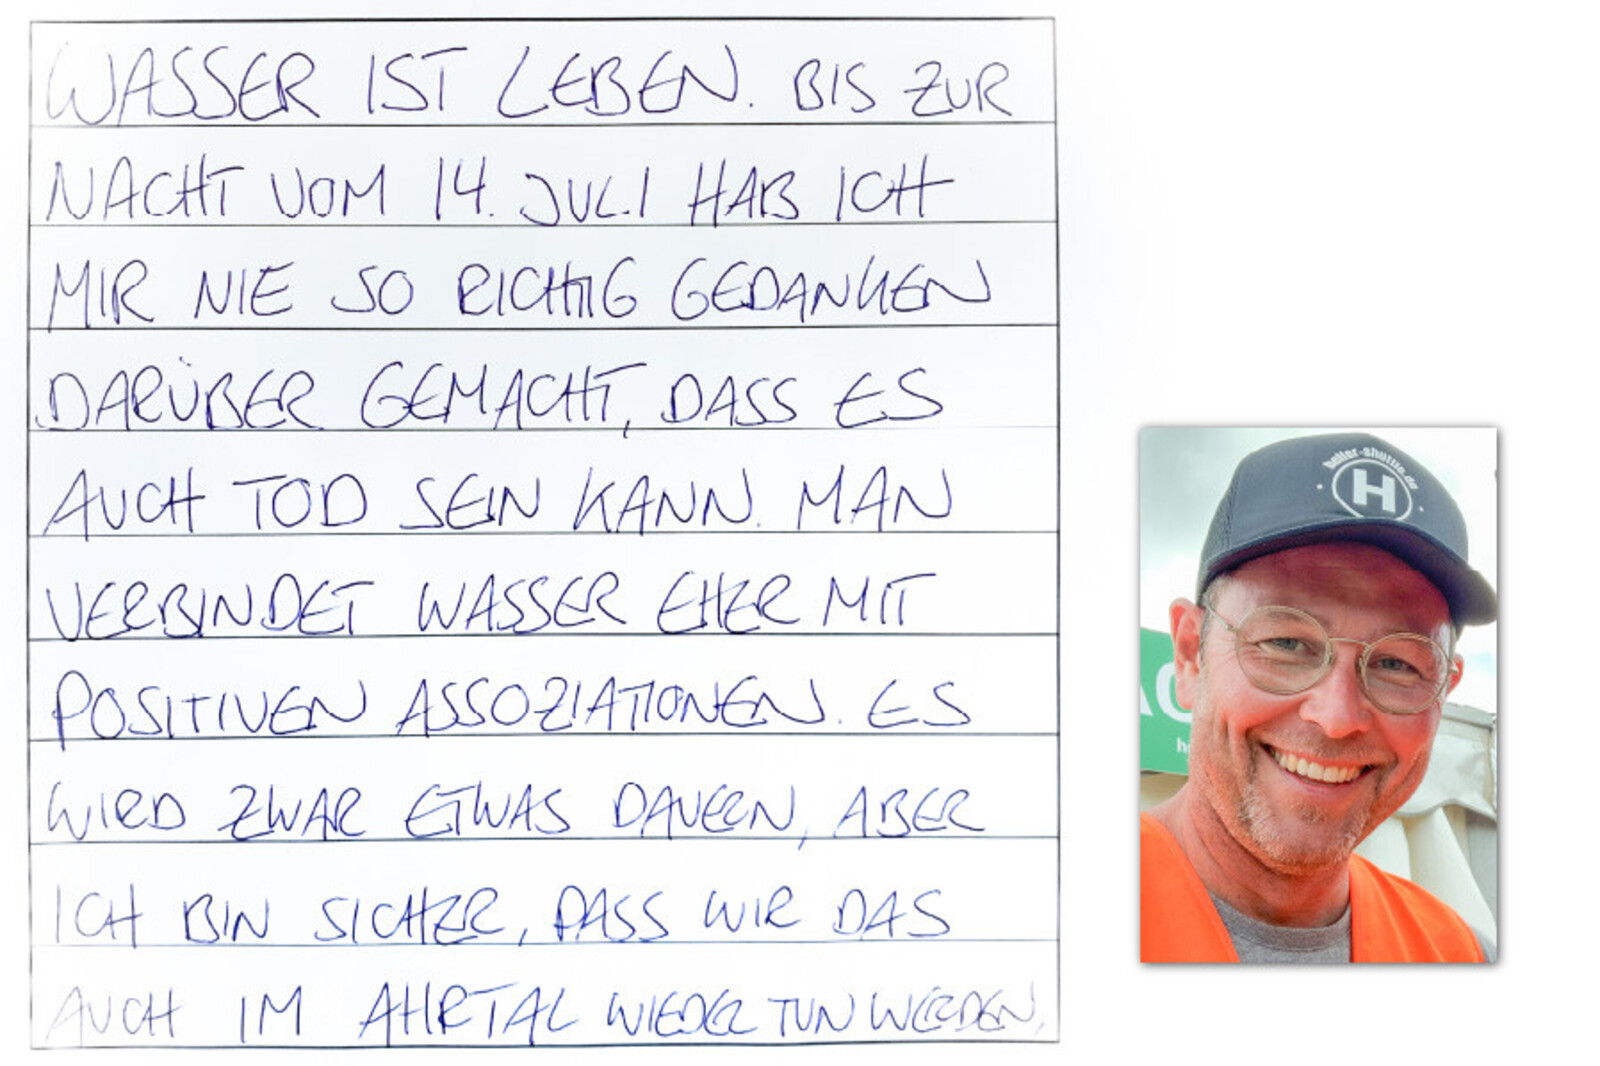 WASSER IST LEBEN. BIS ZUR
NACHT VOM 14. JULI HAB ICH
MIR NIE SO RICHTIG GEDANKEN
DARÜBER GEMACHT, DASS ES
AUCH TOD SEIN KANN. MAN
VERBINDET WASSER EHER MIT
POSITIVEN ASSOZIATIONEN. ES
WIRD ZWAR ETWAS DAUERN, ABER
ICH BIN SICHER, DASS WIR DAS
AUCH IM AHRTAL WIEDER TUN WERDEN.
helfer-shuttle.de
H